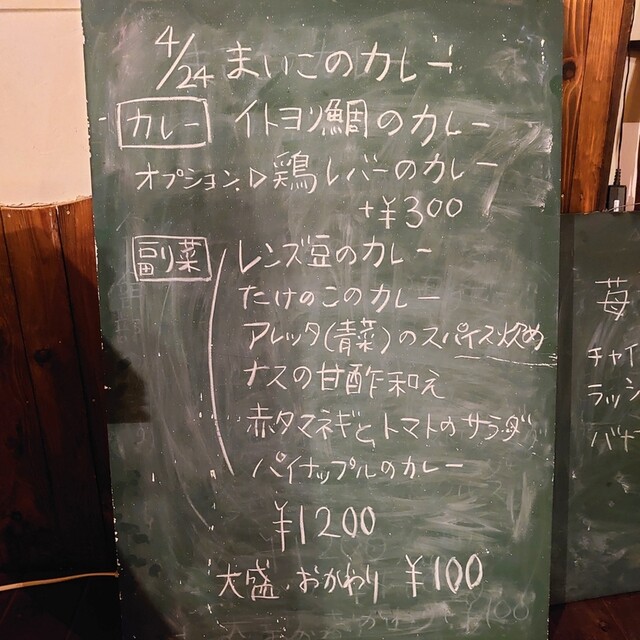 4/24 まいこのカレー
カレー イトヨリ鯛のカレー
オプション▷鶏レバーのカレー
+¥300
副菜
レンズ豆のカレー
たけのこのカレー
アレッタ(青菜)のスパイス炒め
ナスの甘酢和え
赤タマネギとトマトのサラダ
パイナップルのカレー
¥1200
大盛・おかわり ¥100
苺
チャイ
ラッシ
バナ